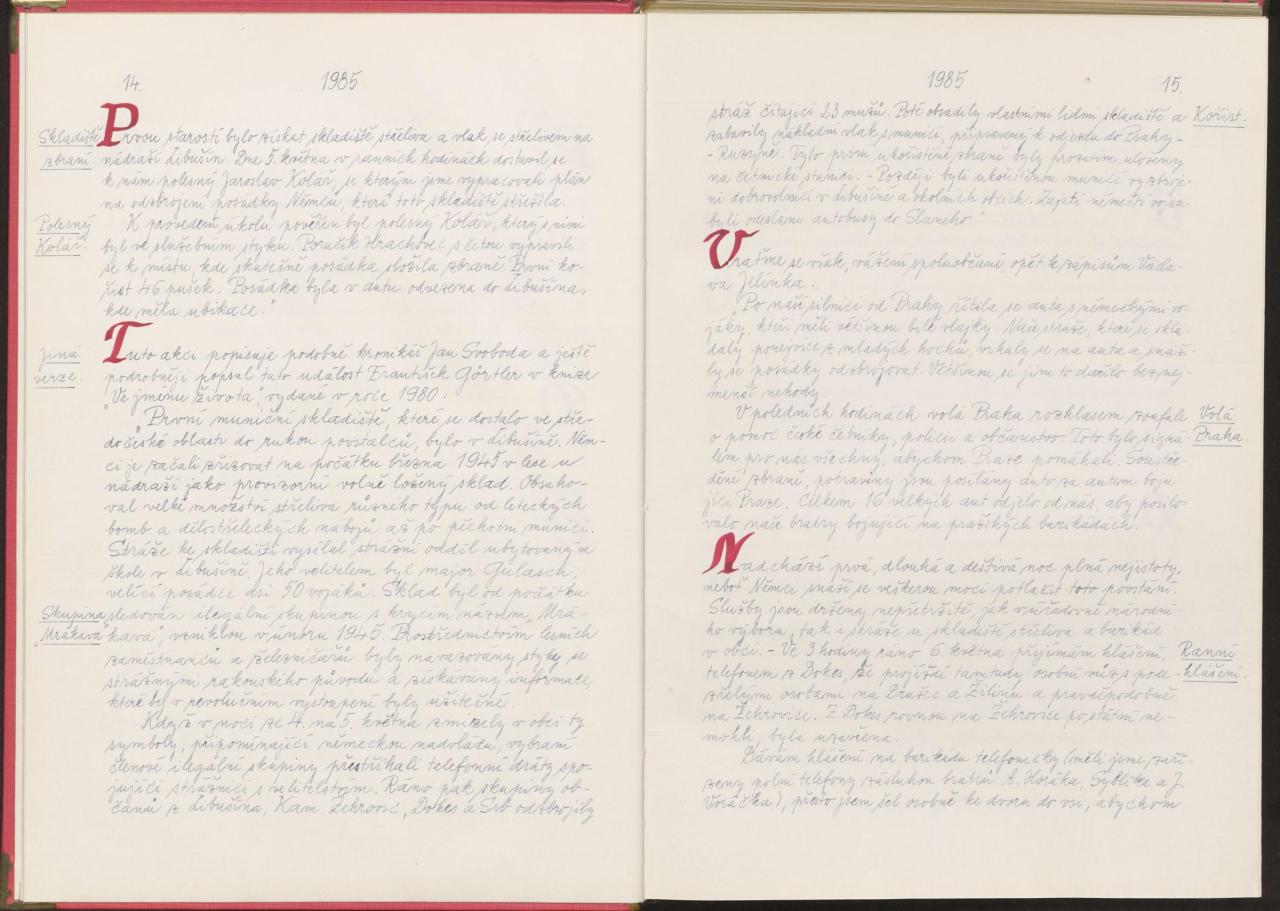 14.
1985
Skladiště
zbraní.
Prvou starostí bylo získat skladiště střeliva a vlak se střelivem na
nádraží Libušín. Dne 5. května v ranních hodinách dostavil se
k nám polesný Jaroslav Kolář, se kterým jsme vypracovali plán
na odzbrojení posádky Němců, která toto skladiště střežila.
Polesný
Kolář.
K provedení úkolu pověřen byl polesný Kolář, který s nimi
byl ve služebním styku. Poručík Hrachovec s četou vypravili
se k místu, kde skutečně posádka složila zbraně. První ko-
řist 46 pušek. Posádka byla v autu odvezena do Libušína,
kde měla ubikace."
Jiná
verze.
Tuto akci popisuje podobně kronikář Jan Svoboda a ještě
podrobněji popsal tuto událost František Görtler v knize
"Ve jménu života", vydané v roce 1980:
"První muniční skladiště, které se dostalo ve stře-
dočeské oblasti do rukou povstalců, bylo v Libušíně. Něm-
ci je začali zřizovat na počátku března 1945 v lese u
nádraží jako provizorní volně ložený sklad. Obsaho-
val velké množství střeliva různého typu od leteckých
bomb a dělostřeleckých nábojů až po pěchotní munici.
Stráže ke skladišti vysílal strážní oddíl ubytovaný ve
škole v Libušíně. Jeho velitelem byl major Gulasch,
velící posádce asi 50 vojáků. Sklad byl od počátku
Skupina
"Mrákava"
sledován ilegální skupinou s krycím názvem "Mrá-
kava", vzniklou v únoru 1945. Prostřednictvím lesních
zaměstnanců a železničářů byly navazovány styky se
strážnými rakouského původu a získávány informace,
které byly v revolučním vystoupení byly užitečné.
Když v noci ze 4. na 5. května zmizely v obci ty
symboly, připomínající německou nadvládu, vybraní
členové ilegální skupiny přestříhali telefonní dráty spo-
jující strážnici s velitelstvím. Ráno pak skupiny ob-
čanů z Libušína, Kam. Žehrovic, Dokes a Srb odzbrojily
1985
15.
stráž čítající 23 mužů. Poté obsadily vlastními lidmi skladiště a
Kořist.
zabavily nákladní vlak s municí, připravený k odjezdu do Prahy-
-Ruzyně. Tyto prvně ukořistěné zbraně byly prozatím uloženy
na četnické stanici. - Později byli ukořistěnou municí vyzbroje-
ni dobrovolníci v Libušíně a okolních obcích. Zajatí němečtí vojáci
byli odesláni autobusy do Slaného."
Vraťme se však, vážení spoluobčané, opět k zápisům Václa-
va Jelínka:
"Po naší silnici od Prahy řítila se auta s německými vo-
jáky, kteří měli většinou bílé vlajky. Naše stráže, které se sklá-
daly ponejvíce z mladých hochů, vrhaly se na auta a snaži-
ly se posádky odzbrojovat. Většinou se jim to dařilo bez nej-
menší nehody.
V poledních hodinách volá Praha rozhlasem zoufale
Volá
Praha.
o pomoc české četníky, policii a občanstvo. Toto bylo signá-
lem pro nás všechny, abychom Praze pomáhali. Soustře-
děné zbraně, potraviny jsou posílány auto za autem boju-
jící Praze. Celkem 16 velkých aut odjelo od nás, aby posílo-
valo naše bratry bojující na pražských barikádách.
Nadchází prvá, dlouhá a deštivá noc plná nejistoty,
neboť Němci snaží se veškerou mocí potlačit toto povstání.
Služby jsou drženy nepřetržitě, jak v úřadovně národní-
ho výboru, tak i stráže u skladiště střeliva a barikád
v obci. - Ve 3 hodiny ráno 6. května přijímám hlášení,
Ranní
hlášení.
telefonem z Dokes, že projíždí tamtudy osobní vůz s pode-
zřelými osobami na Družec a Žilinu a pravděpodobně
na Žehrovice. Z Dokes rovnou na Žehrovice po státní ne-
mohli, byla uzavřena.
Dávám hlášení na barikádu telefonicky (měli jsme zaří-
zeny polní telefony zásluhou bratrů A. Horáka, Sýblíka a J.
Voráčka), přesto jsem šel osobně ke dvoru do vsi, abychom